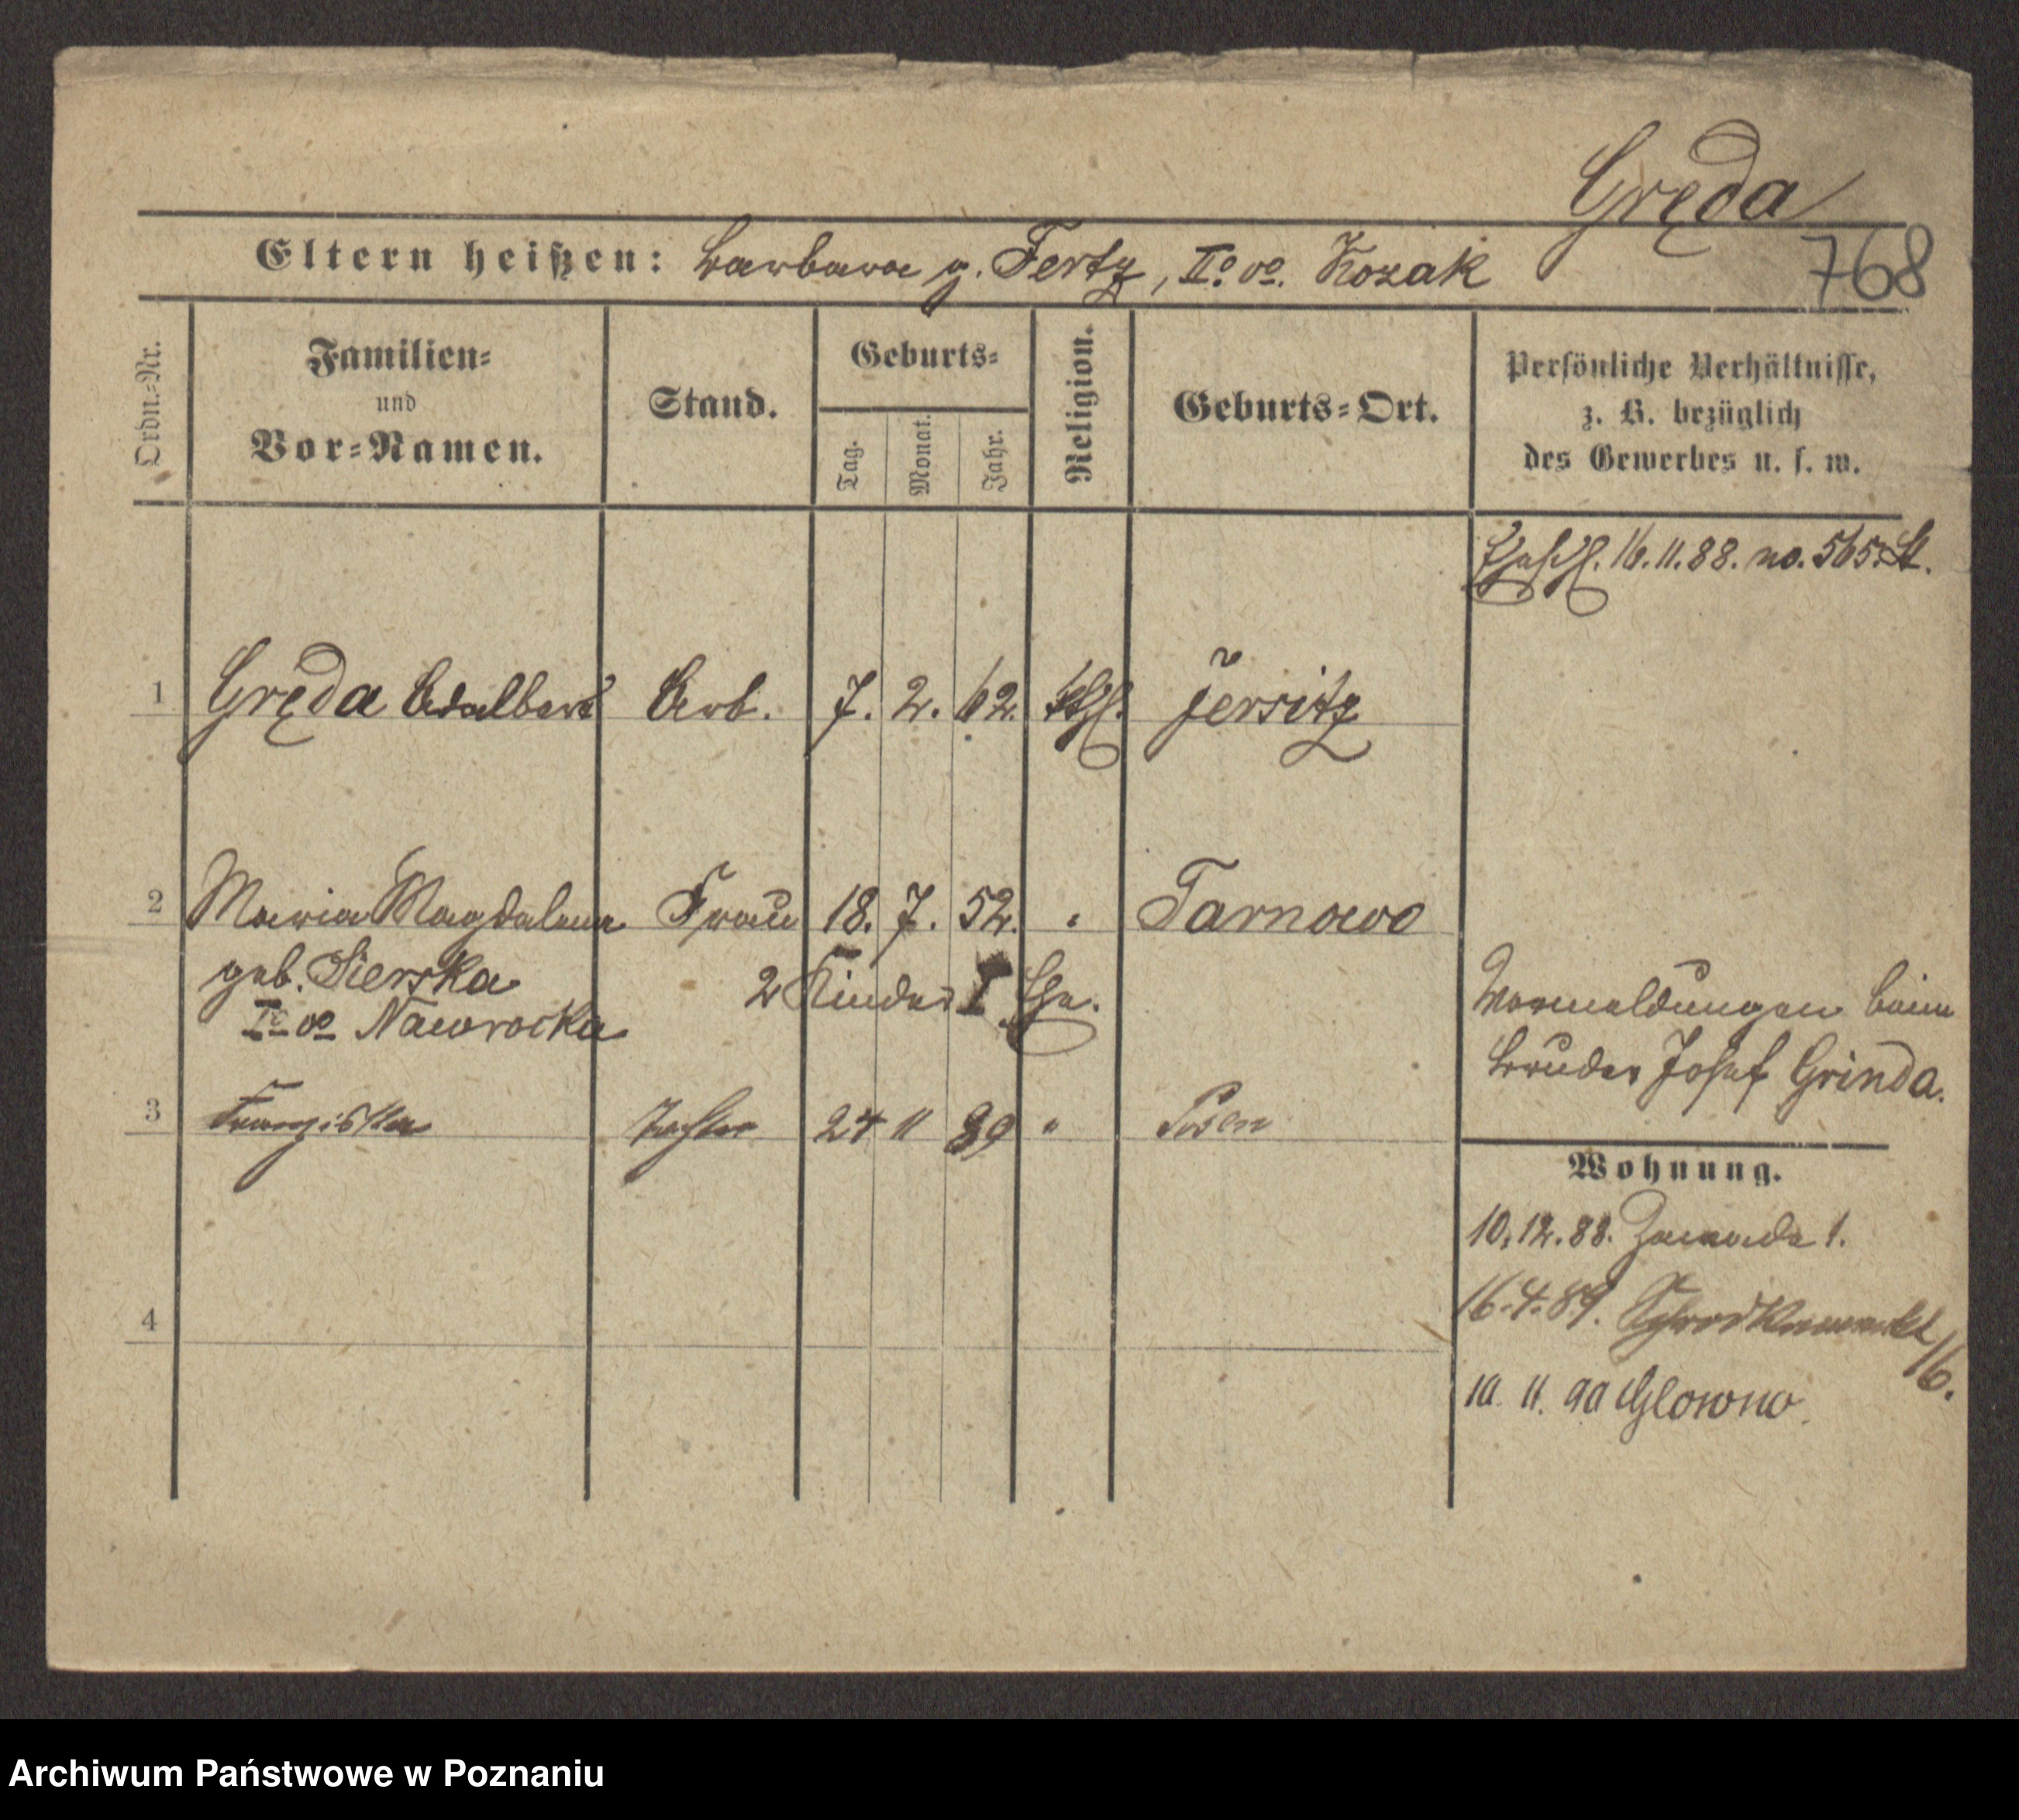 Gręda
768
Eltern heißen: Barbara g. Fertz, IIo vo. Kozak
Ordn.=Nr.
Familien=
und
Vor=Namen.
Stand.
Geburts=
Tag.
Monat.
Jahr.
Religion.
Geburts=Ort.
Persönliche Verhältnisse,
z. B. bezüglich
des Gewerbes u. s. w.
16.11.88. no. 565 St.
1 Gręda Adalbert Arb. 7. 2. 62. kth. Jersitz
2 Maria Magdalena Frau 18. 7. 52. " Tarnowo
geb. Sierska 2 Kinder I Ehe.
Io vo Nawrocka
Vormeldungen beim
Bruder Josef Grinda.
3 Franziska Tochter 24 11 89 " Posen
Wohnung.
10.12.88. Zawade 1.
16.4.89. Schrodkamarkt
16.
4
10. 11. 90 Glowno.
Archiwum Państwowe w Poznaniu